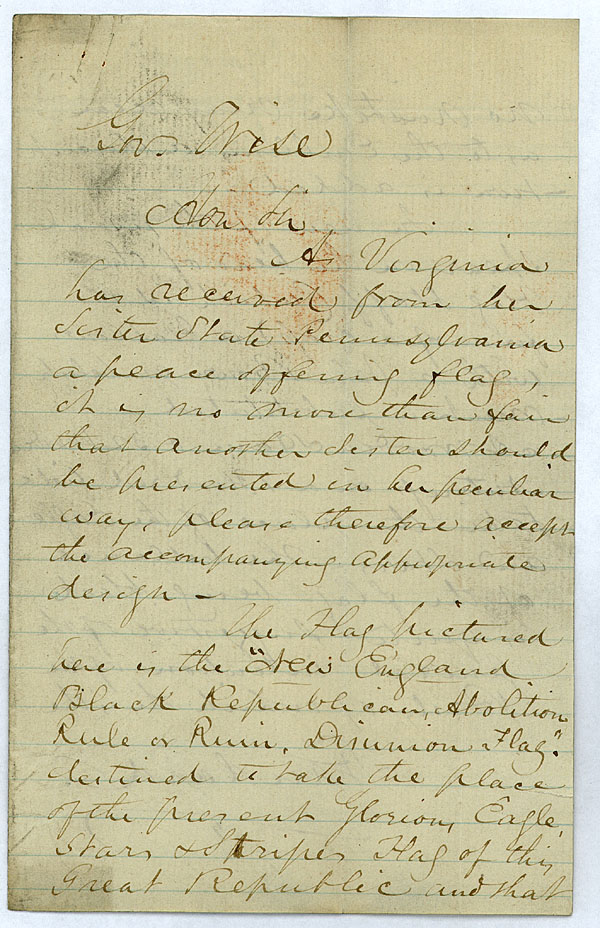 Gov. Wise
Hon Sir
As Virginia
has received from her
Sister State Pennsylvania
a peace offering flag,
it is no more than fair
that another Sister should
be presented in her peculiar
way, please therefore accept
the accompanying appropriate
design –
The Flag pictured
here is the "New England
Black Republican, Abolition
Rule or Ruin, Disunion Flag".
destined to take the place
of the present Glorious Eagle,
Stars & Stripes Flag of this
Great Republic and that